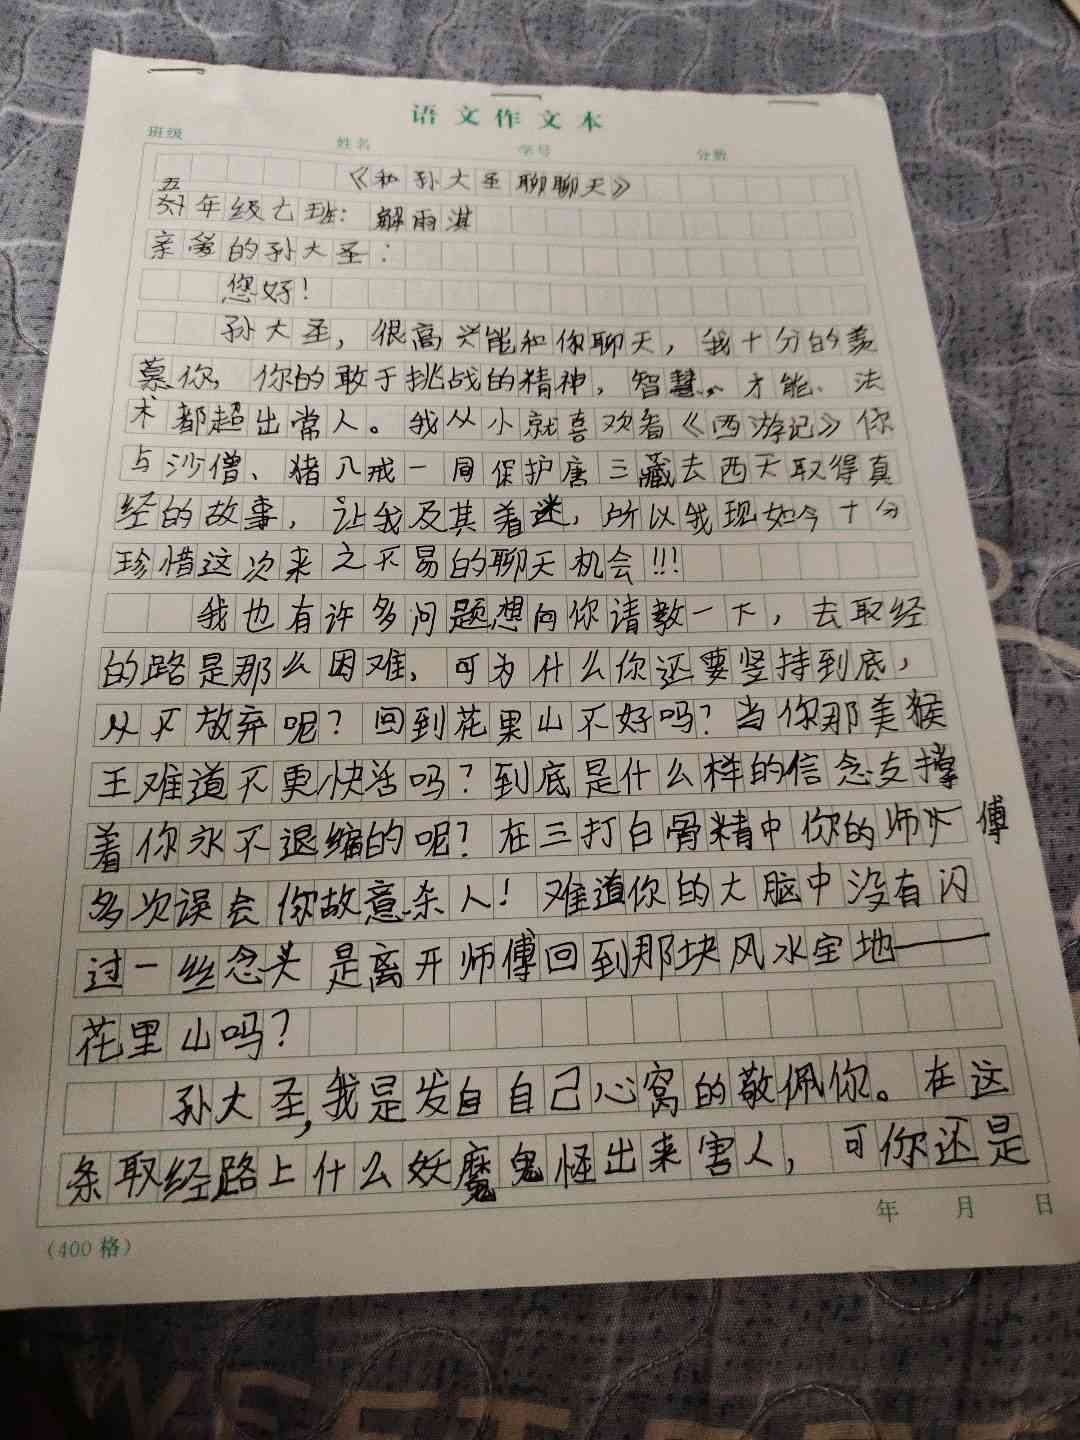 语文作文本
班级 姓名 学号 分数
《和孙大圣聊聊天》
五年级七班：解雨淇
亲爱的孙大圣：
您好！
孙大圣，很高兴能和你聊天，我十分的羡
慕你，你的敢于挑战的精神，智慧、才能、法
术都超出常人。我从小就喜欢看《西游记》你
与沙僧、猪八戒一同保护唐三藏去西天取得真
经的故事，让我及其着迷，所以我现如今十分
珍惜这次来之不易的聊天机会!!!
我也有许多问题想向你请教一下，去取经
的路是那么困难，可为什么你还要坚持到底，
从不放弃呢？回到花果山不好吗？当你那美猴
王难道不更快活吗？到底是什么样的信念支撑
着你永不退缩的呢？在三打白骨精中你的师傅
多次误会你故意杀人！难道你的大脑中没有闪
过一丝念头是离开师傅回到那块风水宝地——
花里山吗？
孙大圣，我是发自自己心窝的敬佩你。在这
条取经路上什么妖魔鬼怪出来害人，可你还是
年 月 日
（400格）